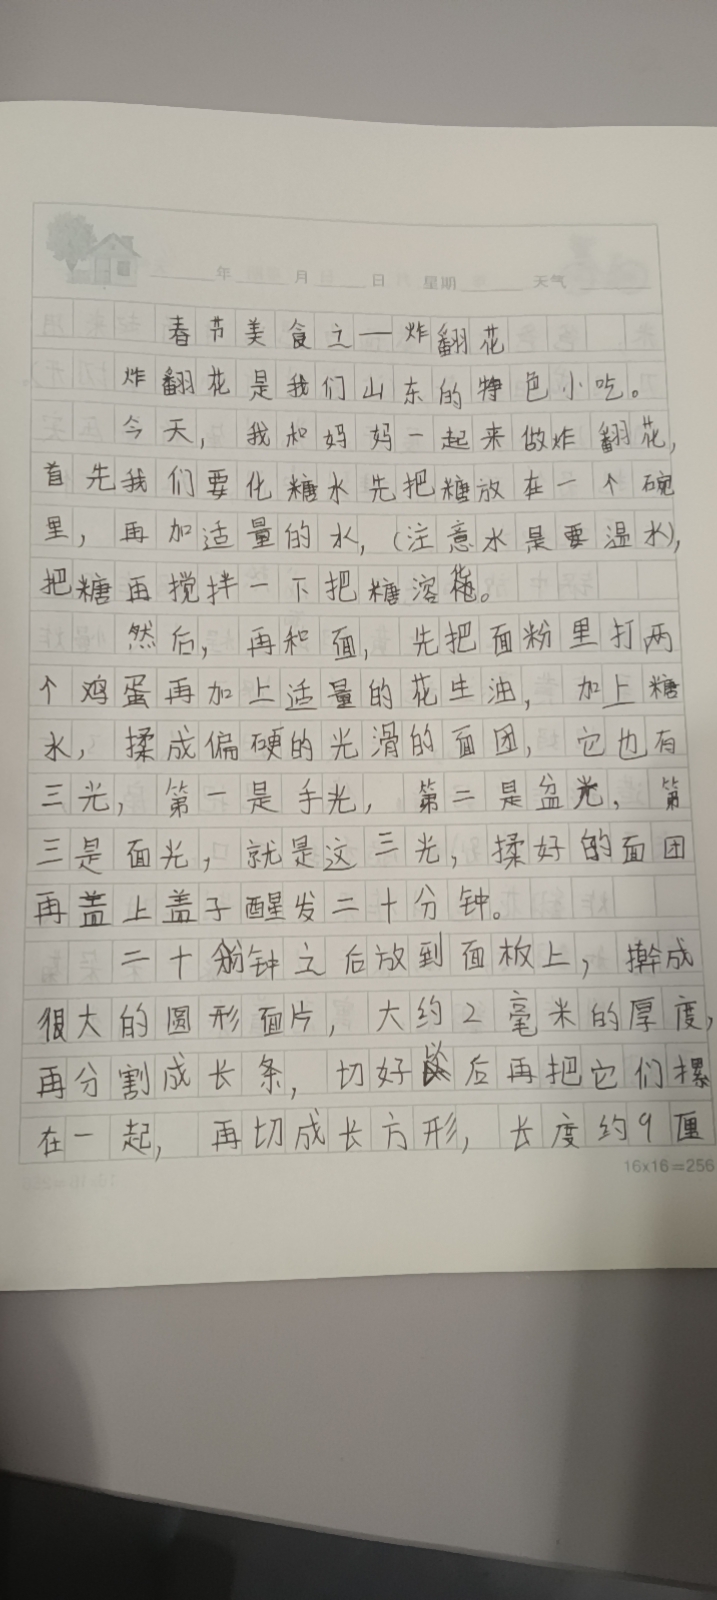 年 月 日 星期 天气
春节美食之一炸翻花
炸翻花是我们山东的特色小吃。
今天，我和妈妈一起来做炸翻花，
首先我们要化糖水先把糖放在一个碗
里，再加适量的水，（注意水是要温水），
把糖再搅拌一下把糖溶化。
然后，再和面，先把面粉里打两
个鸡蛋再加上适量的花生油，加上糖
水，揉成偏硬的光滑的面团，它也有
三光，第一是手光，第二是盆光，第
三是面光，就是这三光，揉好的面团
再盖上盖子醒发二十分钟。
二十分钟之后放到面板上，擀成
很大的圆形面片，大约2毫米的厚度，
再分割成长条，切好后再把它们摞
在一起，再切成长方形，长度约9厘
16×16=256